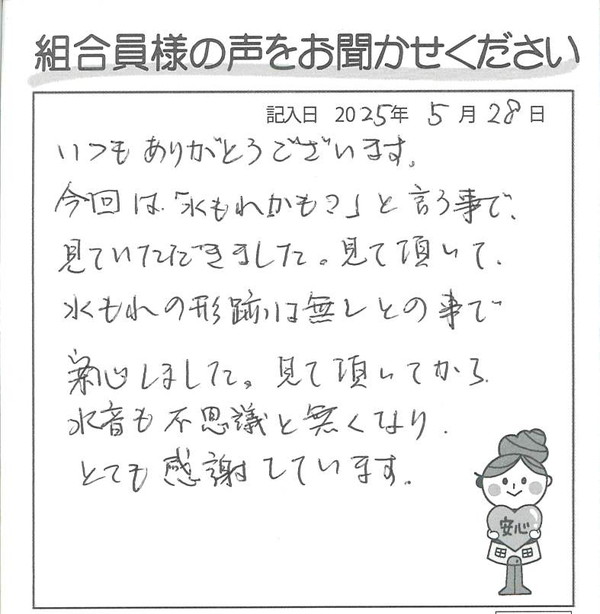 組合員様の声をお聞かせください
記入日 2025年 5月 28日
いつもありがとうございます。
今回は「水もれかも?」と言う事で、
見ていただきました。見て頂いて、
水もれの形跡は無しとの事で
安心しました。見て頂いてから
水音も不思議と無くなり、
とても感謝しています。
安心